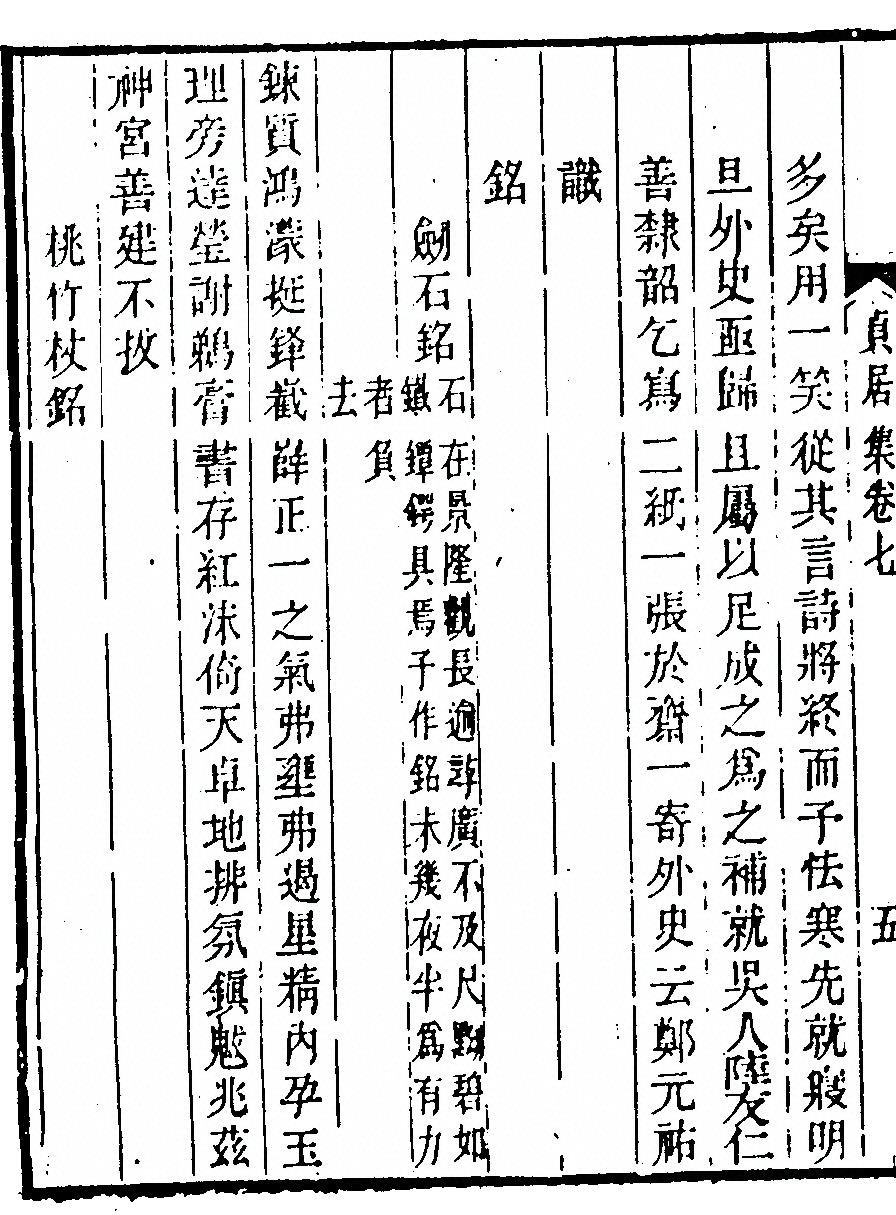 貞居集卷七
五
多矣用一笑從其言詩將終而予怯寒先就寢明
旦外史亟歸且屬以足成之爲之補就吳人陸友仁
善隸韶乞寫二紙一張於齋一寄外史云鄭元祐
識
銘
劒石銘
石在景隆觀長逾尋廣不及尺黝碧如
鐵鐔鍔具焉予作銘未幾夜半爲有力
者負
去
鍊質鴻濛挺鋒截嶭正一之氣弗堊弗遏星精內孕玉
理旁達瑩謝鵜膏書存紅沫倚天卓地排氛鎮魃兆茲
神宮善建不拔
桃竹杖銘